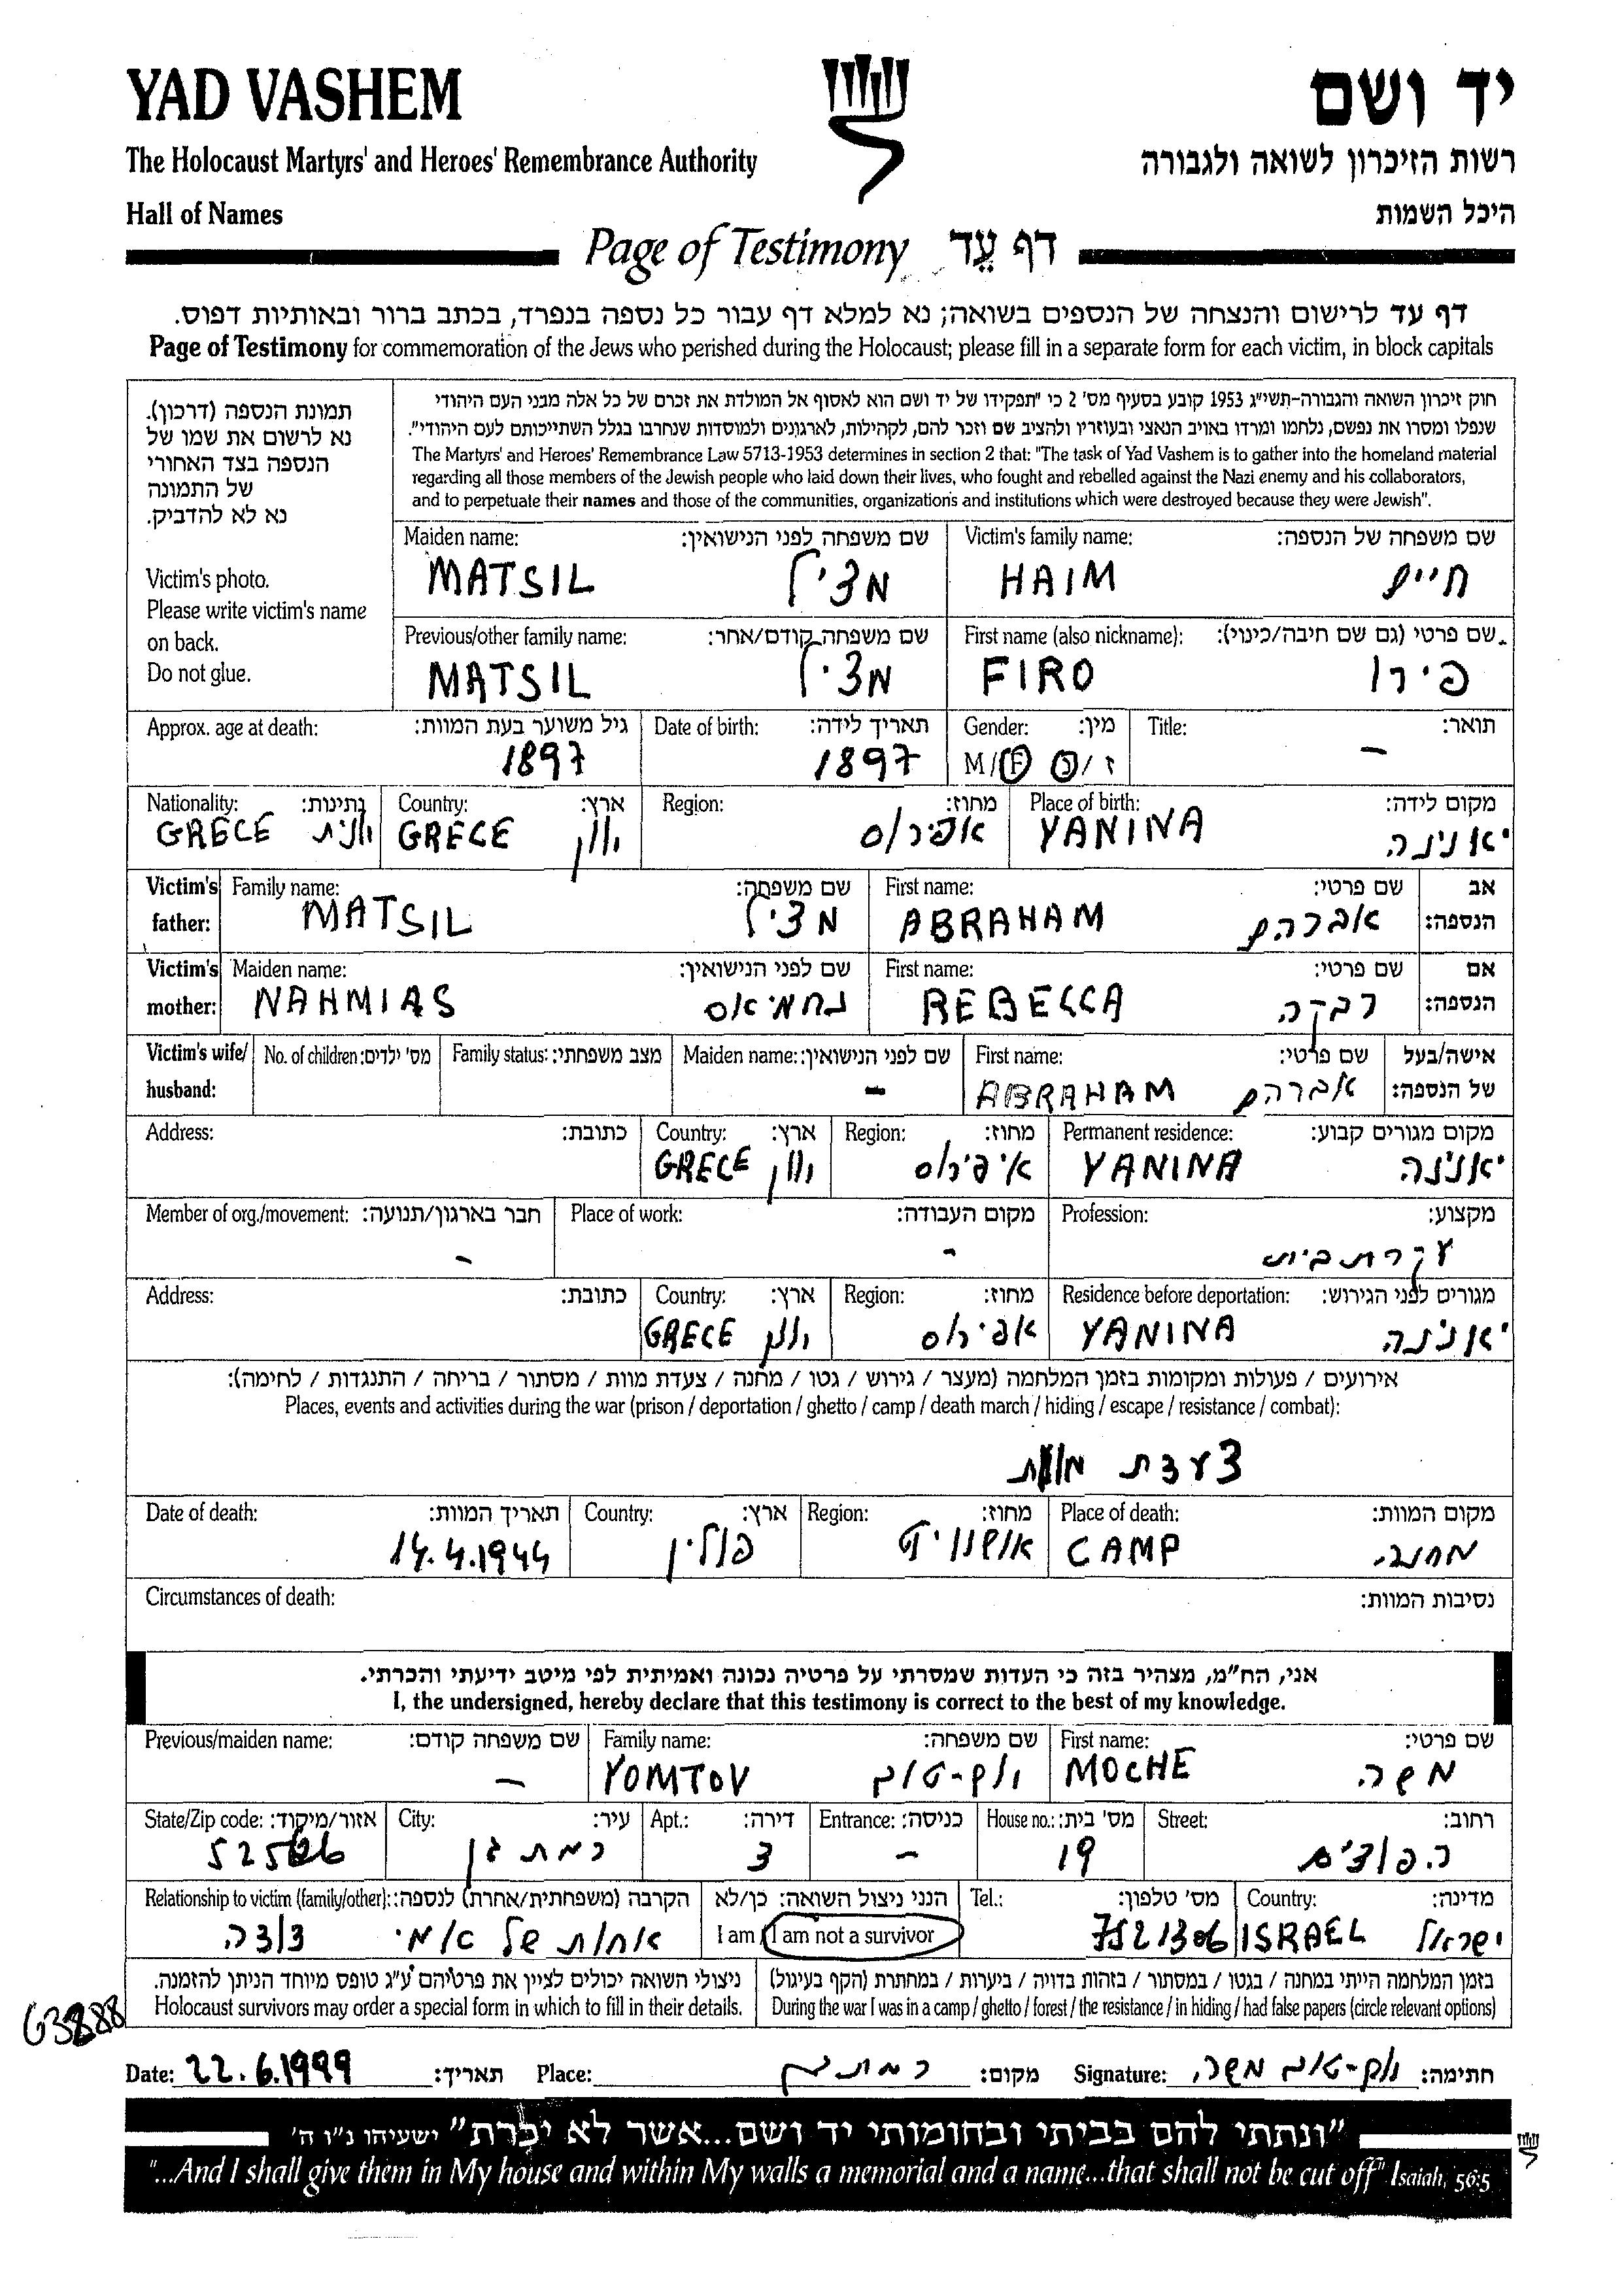 YAD VASHEM
יד ושם
The Holocaust Martyrs' and Heroes' Remembrance Authority
רשות הזיכרון לשואה ולגבורה
Hall of Names
היכל השמות
Page of Testimony דף עֵד
דף עד לרישום והנצחה של הנספים בשואה; נא למלא דף עבור כל נספה בנפרד, בכתב ברור ובאותיות דפוס.
Page of Testimony for commemoration of the Jews who perished during the Holocaust; please fill in a separate form for each victim, in block capitals
תמונת הנספה (דרכון).
נא לרשום את שמו של
הנספה בצד האחורי
של התמונה
נא לא להדביק.
Victim's photo.
Please write victim's name
on back.
Do not glue.
חוק זיכרון השואה והגבורה-תשי"ג 1953 קובע בסעיף מס' 2 כי "תפקידו של יד ושם הוא לאסוף אל המולדת את זכרם של כל אלה מבני העם היהודי
שנפלו ומסרו את נפשם, נלחמו ומרדו באויב הנאצי ובעוזריו ולהציב שם וזכר להם, לקהילות, לארגונים ולמוסדות שנחרבו בגלל השתייכותם לעם היהודי".
The Martyrs' and Heroes' Remembrance Law 5713-1953 determines in section 2 that: "The task of Yad Vashem is to gather into the homeland material
regarding all those members of the Jewish people who laid down their lives, who fought and rebelled against the Nazi enemy and his collaborators,
and to perpetuate their names and those of the communities, organizations and institutions which were destroyed because they were Jewish".
Maiden name: שם משפחה לפני הנישואין: Victim's family name: שם משפחה של הנספה:
MATSIL מציל HAIM חיים
Previous/other family name: שם משפחה קודם/אחר: First name (also nickname): שם פרטי (גם שם חיבה/כינוי):
MATSIL מציל FIRO פירו
Approx. age at death: גיל משוער בעת המוות: Date of birth: תאריך לידה: Gender: מין: Title: תואר:
1897 1897 M/F נ/ז -
Nationality: נתינות: Country: ארץ: Region: מחוז: Place of birth: מקום לידה:
GRECE יוונית GRECE יוון אפירוס YANINA יאנינה
Victim's father: Family name: שם משפחה: First name: שם פרטי: אב הנספה:
MATSIL מציל ABRAHAM אברהם
Victim's mother: Maiden name: שם לפני הנישואין: First name: שם פרטי: אם הנספה:
NAHMIAS נחמיאס REBECCA רבקה
Victim's wife/ husband: No. of children: מס' ילדים: Family status: מצב משפחתי: Maiden name: שם לפני הנישואין: First name: שם פרטי: אישה/בעל של הנספה:
- ABRAHAM אברהם
Address: כתובת: Country: ארץ: Region: מחוז: Permanent residence: מקום מגורים קבוע:
GRECE יוון איפירוס YANINA יאנינה
Member of org./movement: חבר בארגון/תנועה: Place of work: מקום העבודה: Profession: מקצוע:
- - עקרת בית
Address: כתובת: Country: ארץ: Region: מחוז: Residence before deportation: מגורים לפני הגירוש:
GRECE יוון אפירוס YANINA יאנינה
אירועים / פעולות ומקומות בזמן המלחמה (מעצר / גירוש / גטו / מחנה / צעדת מוות / מסתור / בריחה / התנגדות / לחימה):
Places, events and activities during the war (prison / deportation / ghetto / camp / death march / hiding / escape / resistance / combat):
צעדת מוות
Date of death: תאריך המוות: Country: ארץ: Region: מחוז: Place of death: מקום המוות:
14.4.1944 פולין אושוויץ CAMP מחנה
Circumstances of death: נסיבות המוות:
אני, הח"מ, מצהיר בזה כי העדות שמסרתי על פרטיה נכונה ואמיתית לפי מיטב ידיעתי והכרתי.
I, the undersigned, hereby declare that this testimony is correct to the best of my knowledge.
Previous/maiden name: שם משפחה קודם: Family name: שם משפחה: First name: שם פרטי:
- YOMTOV יום-טוב MOCHE משה
State/Zip code: אזור/מיקוד: City: עיר: Apt.: דירה: Entrance: כניסה: House no.: מס' בית: Street: רחוב:
רמת גן 3 - 19
Relationship to victim (family/other): הקרבה (משפחתית/אחרת) לנספה: הנני ניצול השואה: כן/לא Tel.: מס' טלפון: Country: מדינה:
דודה אחות של אמי I am / I am not a survivor ISRAEL ישראל
ניצולי השואה יכולים לציין את פרטיהם ע"ג טופס מיוחד הניתן להזמנה.
Holocaust survivors may order a special form in which to fill in their details.
בזמן המלחמה הייתי במחנה / בגטו / במסתור / בזהות בדויה / ביערות / במחתרת (הקף בעיגול)
During the war I was in a camp / ghetto / forest / the resistance / in hiding / had false papers (circle relevant options)
Date: 22.6.1999 תאריך: Place: רמת גן מקום: Signature: יום-טוב משה חתימה:
"ונתתי להם בביתי ובחומותי יד ושם...אשר לא יכרת" ישעיהו נ"ו ה'
"...And I shall give them in My house and within My walls a memorial and a name...that shall not be cut off" Isaiah, 56:5